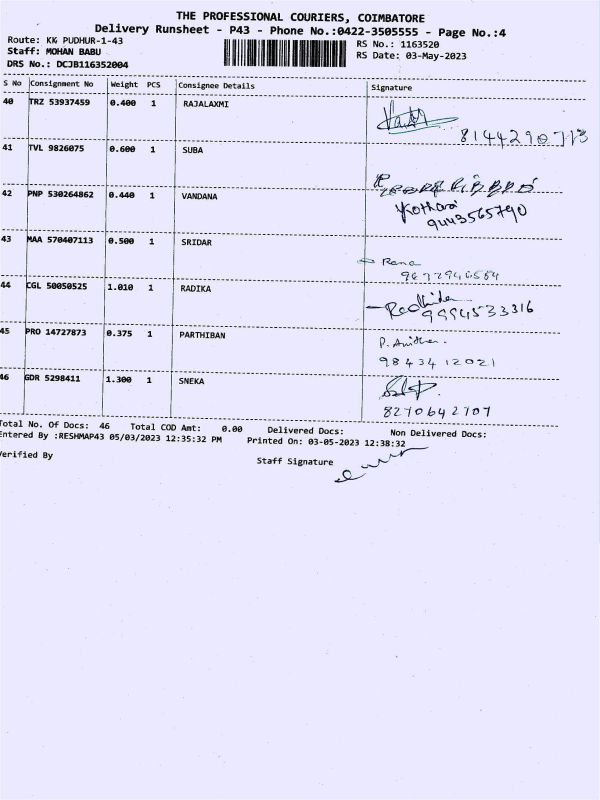 THE PROFESSIONAL COURIERS, COIMBATORE
Delivery Runsheet - P43 - Phone No.:0422-3505555 - Page No.:4
Route: KK PUDHUR-1-43
RS No.: 1163520
Staff: MOHAN BABU
RS Date: 03-May-2023
DRS No.: DCJB116352004
S No Consignment No Weight PCS Consignee Details Signature
40 TRZ 53937459 0.400 1 RAJALAXMI
41 TVL 9826075 0.600 1 SUBA
42 PNP 530264862 0.440 1 VANDANA
Kothari
9443565790
43 MAA 570407113 0.500 1 SRIDAR
Rana
44 CGL 50050525 1.010 1 RADIKA
Radhika
9994533316
45 PRO 14727873 0.375 1 PARTHIBAN
P. Anitha.
9843412021
46 GDR 5298411 1.300 1 SNEKA
8270642707
Total No. Of Docs: 46 Total COD Amt: 0.00 Delivered Docs: Non Delivered Docs:
Entered By :RESHMAP43 05/03/2023 12:35:32 PM Printed On: 03-05-2023 12:38:32
Verified By Staff Signature